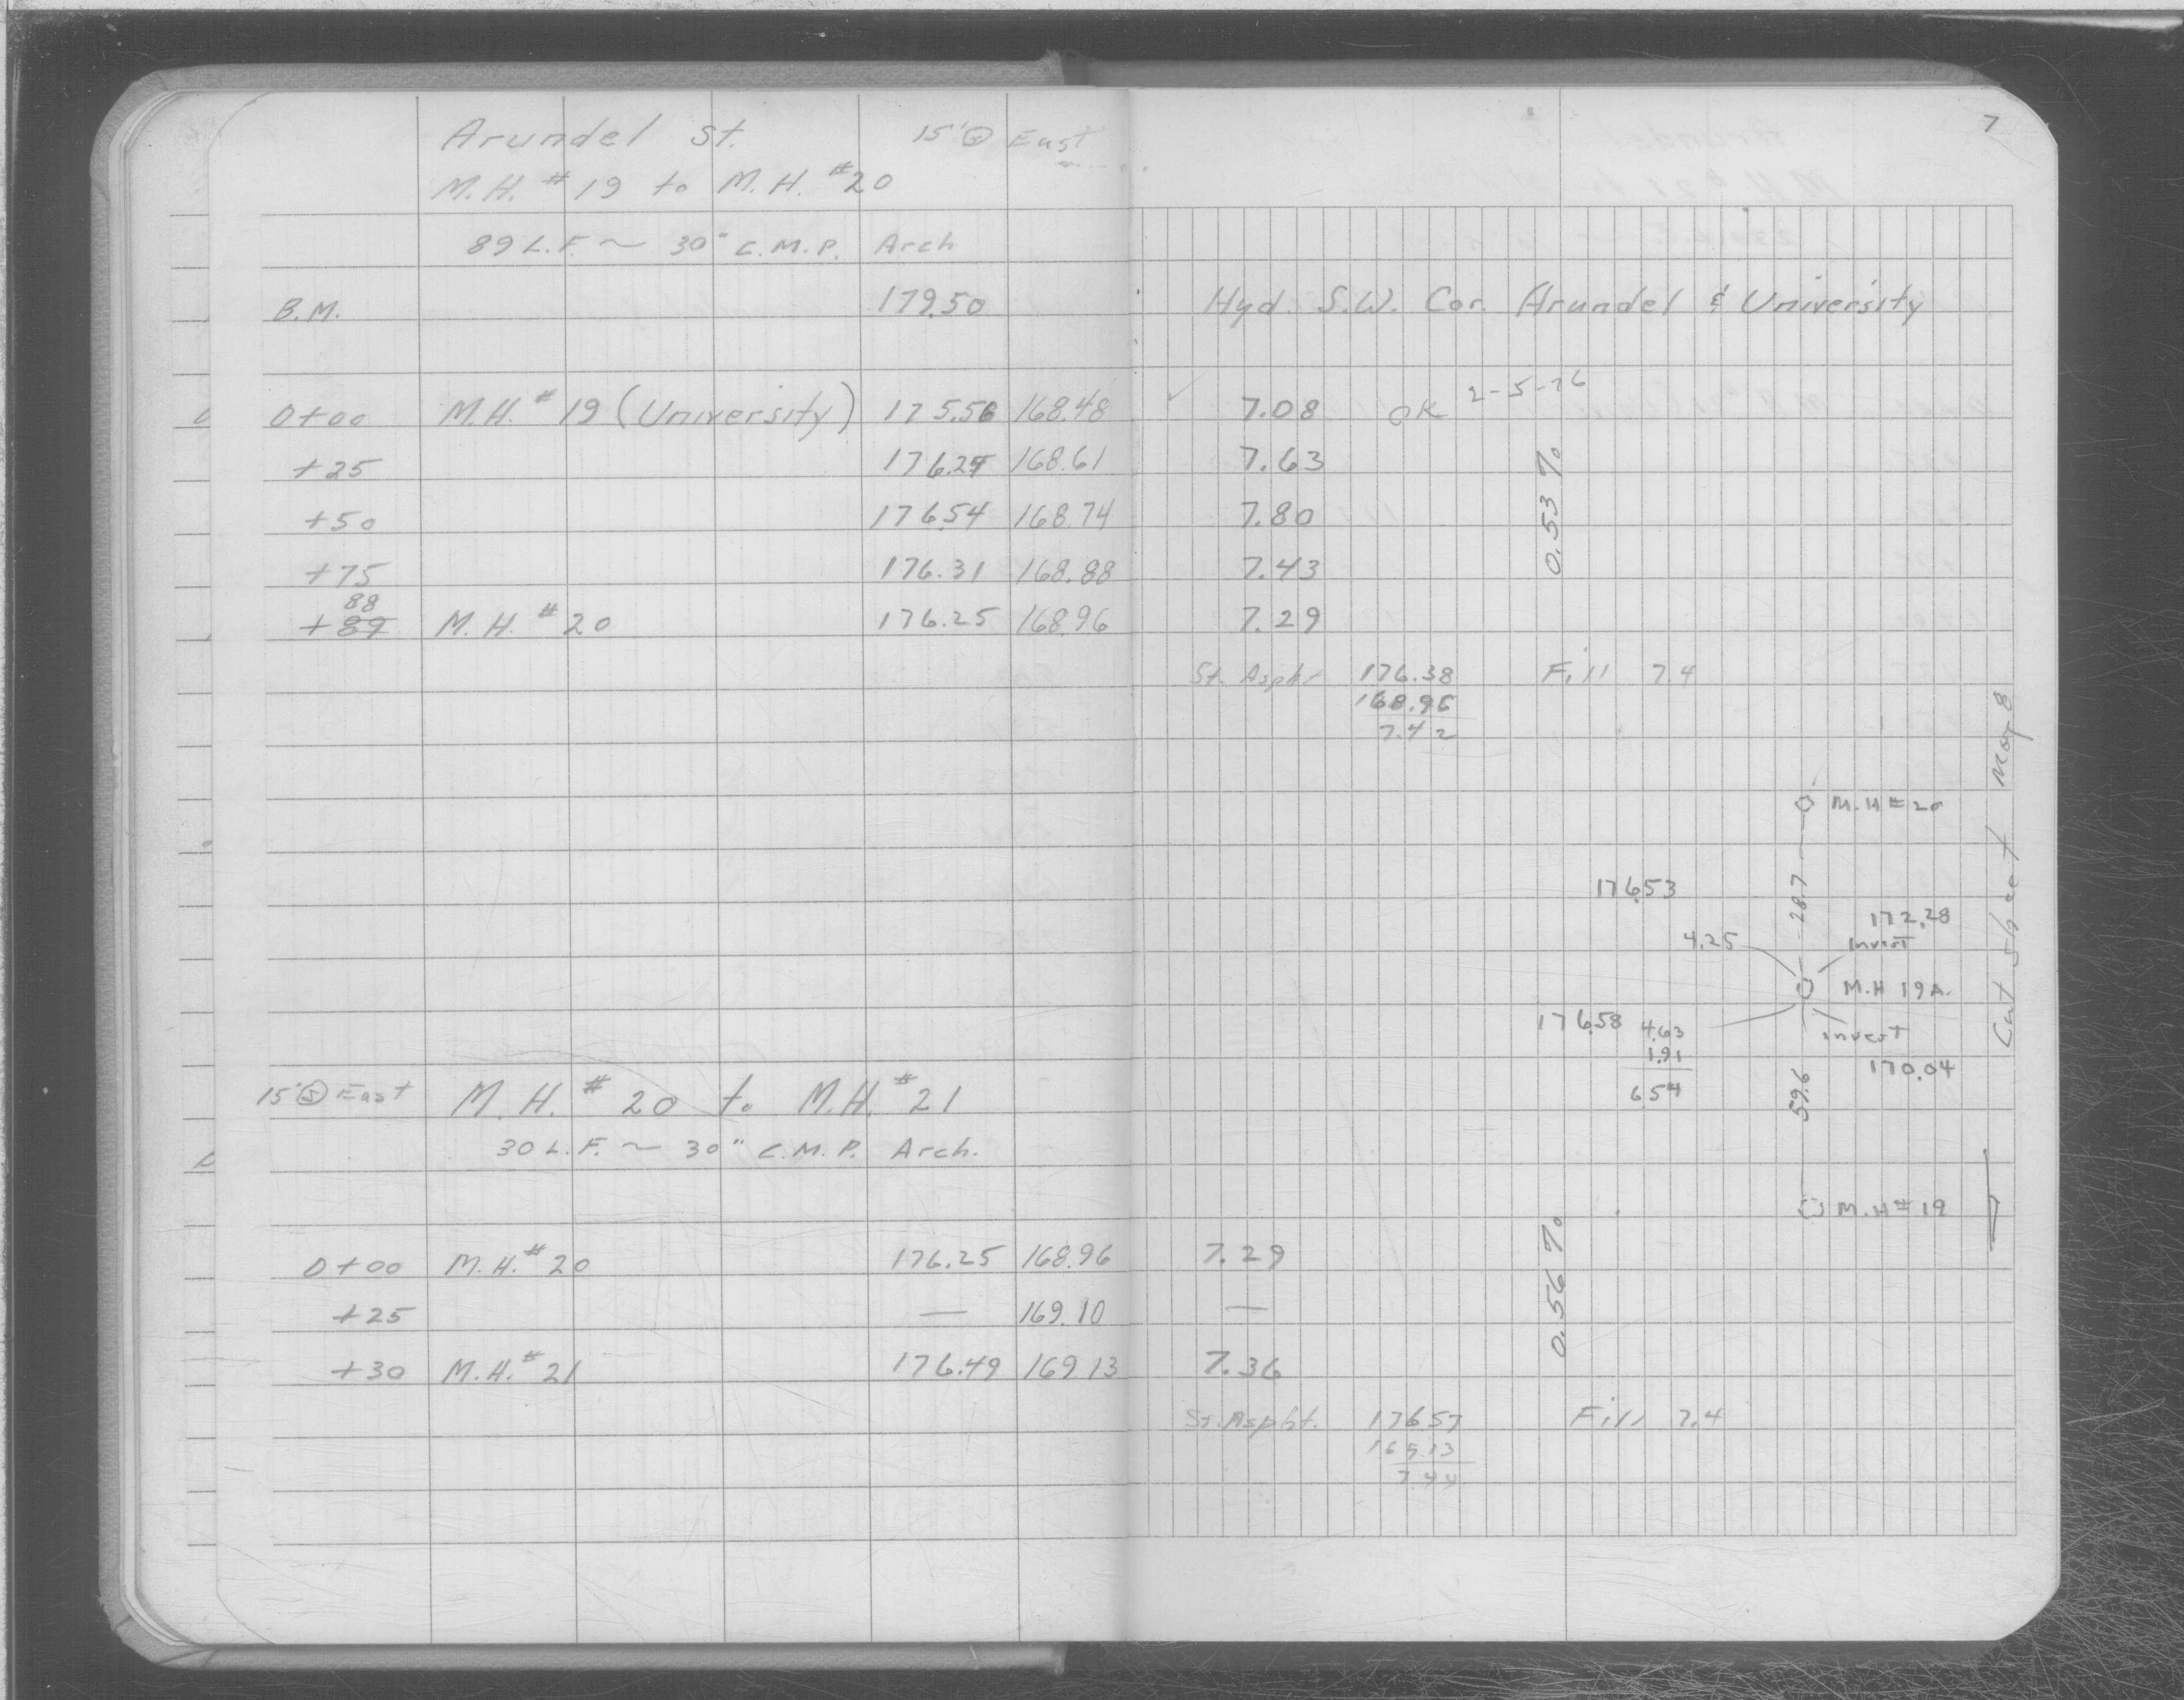 7
Arundel St. 15' Ⓢ East
M.H. #19 to M.H. #20
89 L.F. ~ 30" C.M.P. Arch
B.M. 179.50 Hyd. S.W. Cor. Arundel & University
0+00 M.H. #19 (University) 175.56 168.48 ✓ 7.08 OK 2-5-76
+25 176.24 168.61 7.63
+50 176.54 168.74 7.80
+75 176.31 168.88 7.43
88
+89 M.H. #20 176.25 168.96 7.29
0.53 %
St. Aspht 176.38 Fill 7.4
168.96
7.42
M.H #20
28.7
176.53
4.25
172.28
invert
M.H 19A.
176.58 4.63
1.91
6.54
invert
170.04
59.6
M.H #19
Cut Sheet May 8
15' Ⓢ East M.H. #20 to M.H. #21
30 L.F. ~ 30" C.M.P. Arch.
0+00 M.H. #20 176.25 168.96 7.29
+25 — 169.10 —
+30 M.H. #21 176.49 169.13 7.36
0.56 %
St. Aspht. 176.57 Fill 7.4
169.13
7.44